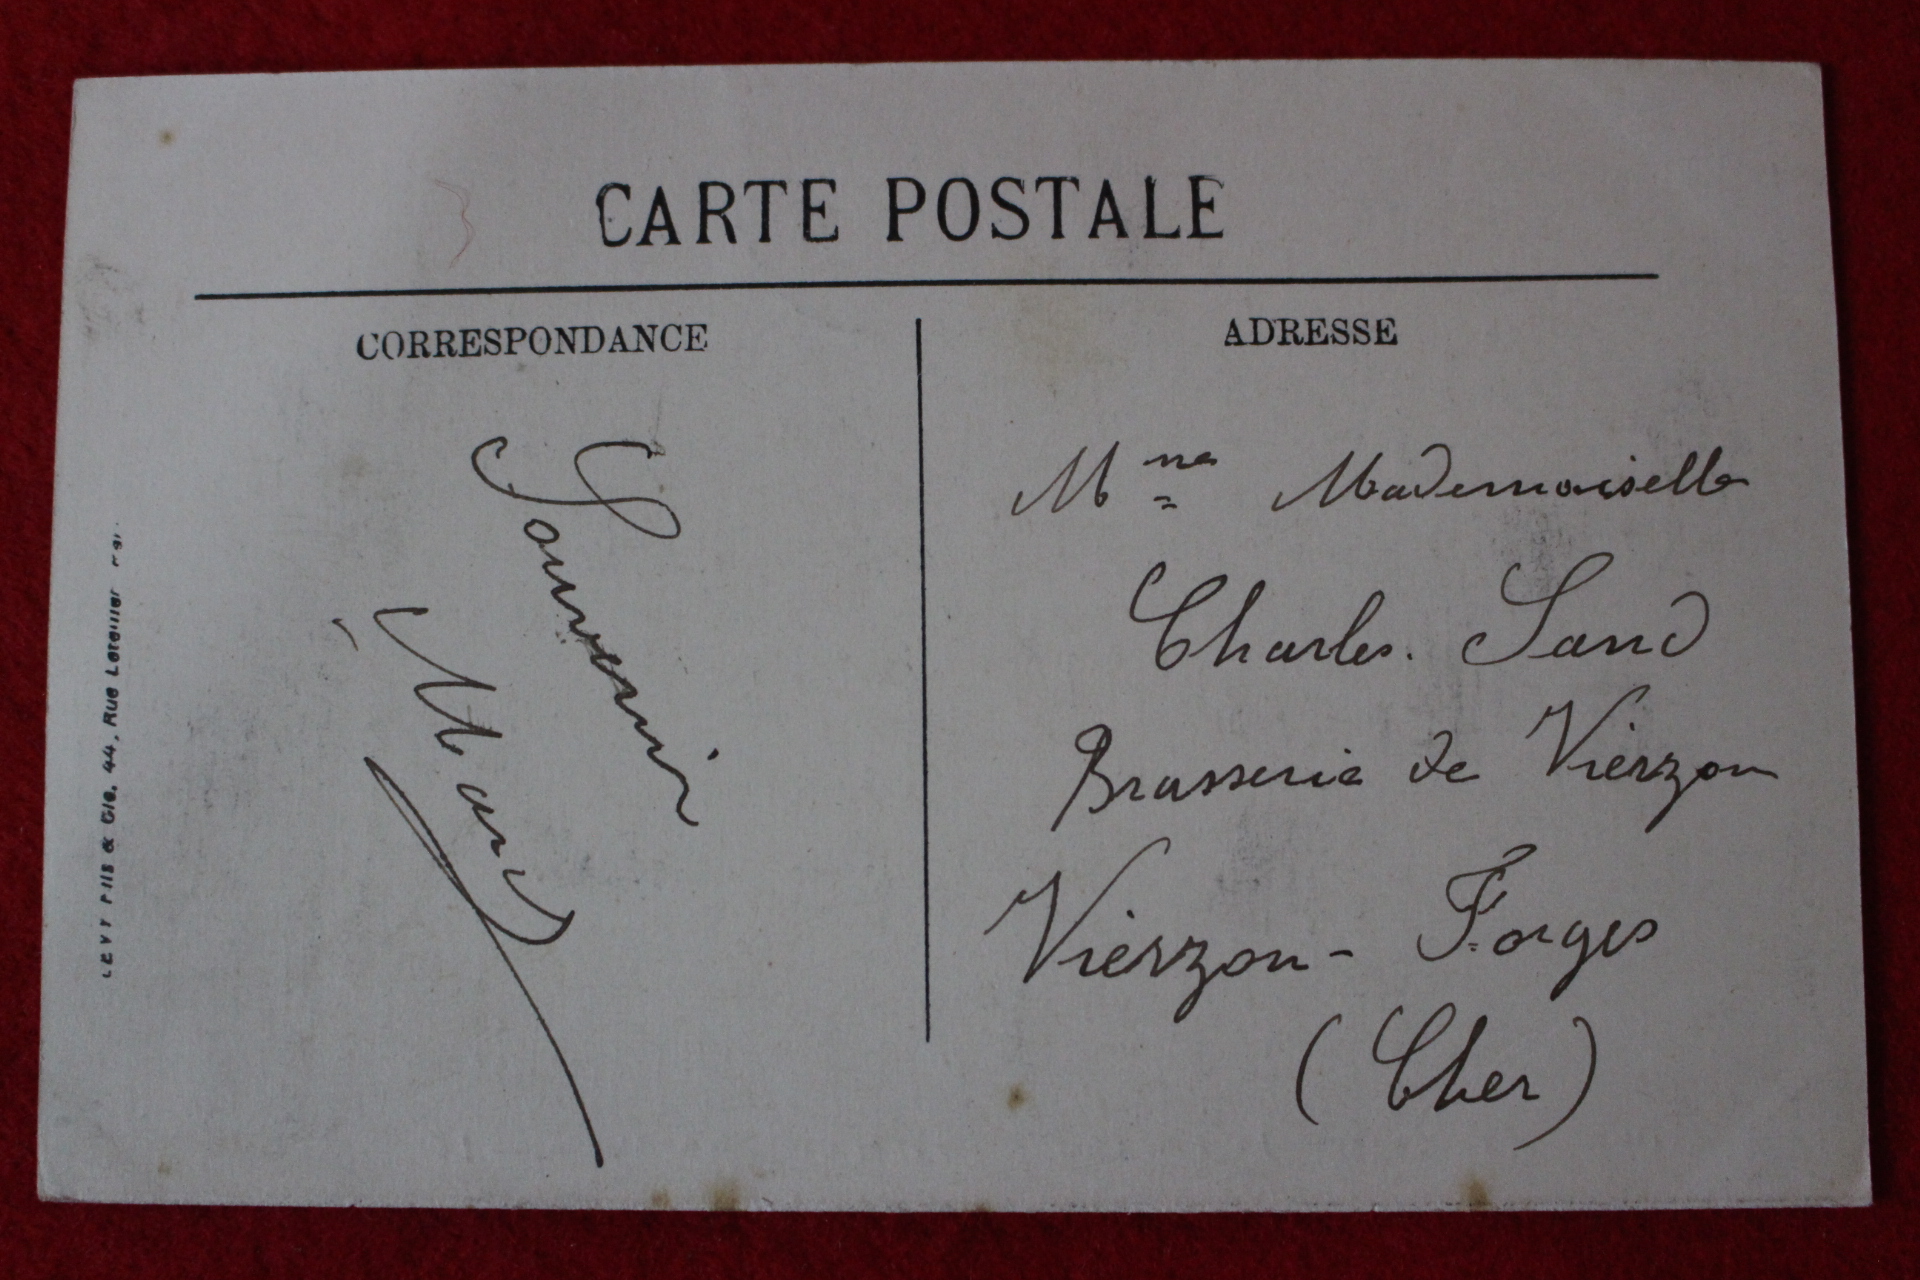 CARTE POSTALE
CORRESPONDANCE
Souvenir
ADRESSE
Mme Mademoiselle
Charles. Sand
Brasserie de Vierzon
Vierzon - Forges
(Cher)
LEVY FILS & Cie. 44, Rue Letellier